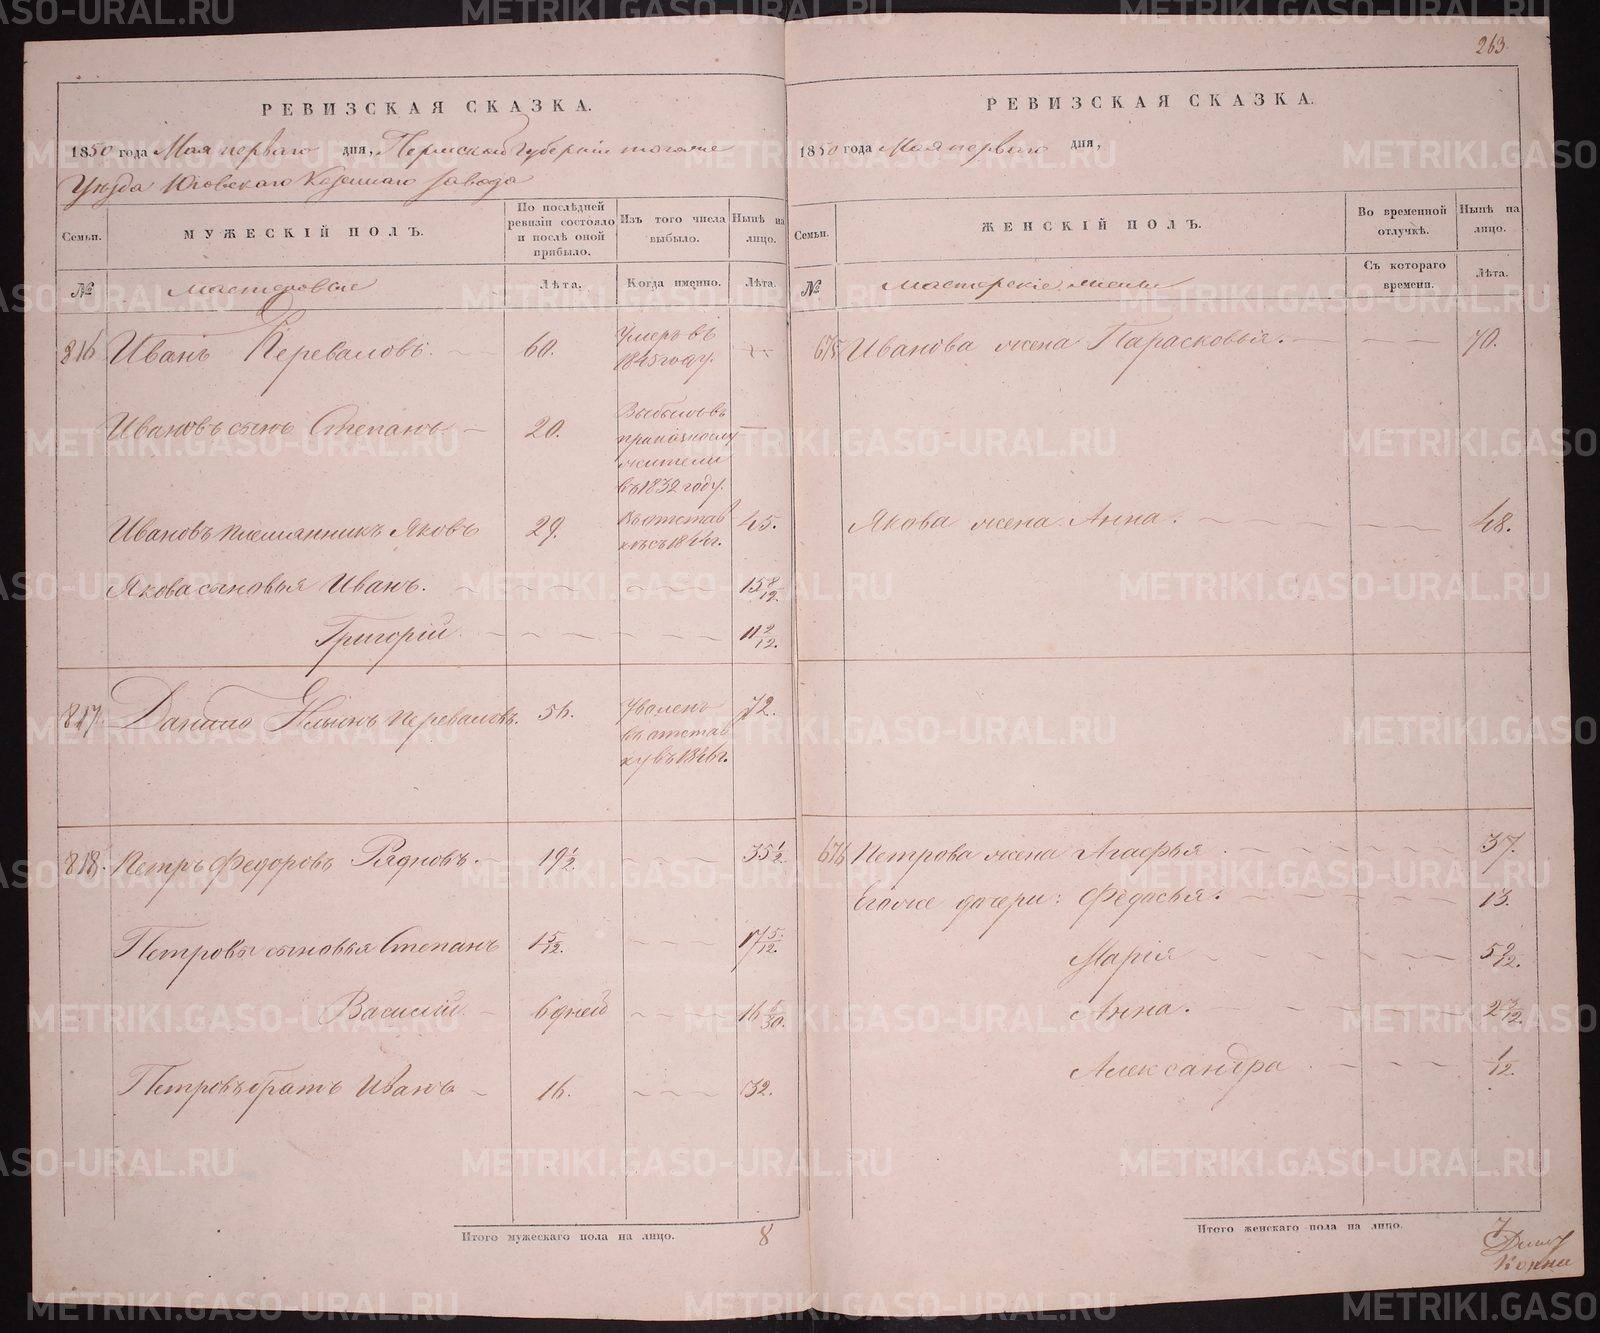 263.
РЕВИЗСКАЯ СКАЗКА.
1850 года Мая перваго дня, Пермской Губерніи тогоже
Уѣзда Юговскаго Казеннаго завода
Семьи. МУЖЕСКІЙ ПОЛЪ. По послѣдней ревизіи состояло и послѣ оной прибыло. Изъ того числа выбыло. Нынѣ на лицо.
№ мастеровые Лѣта. Когда именно. Лѣта.
816 Иванъ Переваловъ. 60. Умеръ въ 1845 году.
Ивановъ сынъ Степанъ 20. Выбылъ въ приказнослужители въ 1832 году.
Ивановъ племянникъ Яковъ 29. Въ отставкѣ съ 1844 г. 45.
Якова сыновья Иванъ. 15 8/12.
Григорій 11 2/12.
817. Данило Переваловъ. 56. Уволенъ въ отставку въ 1846 г. 72.
818. Петръ Федоровъ 19 1/2 35 1/2.
Петровы сыновья Степанъ 1 5/12. 17 5/12.
Василій 6 дней 16 6/30.
Петровъ братъ Иванъ 16. 32.
Итого мужескаго пола на лицо. 8
РЕВИЗСКАЯ СКАЗКА.
1850 года Мая перваго дня,
Семьи. ЖЕНСКІЙ ПОЛЪ. Во временной отлучкѣ. Нынѣ на лицо.
№ мастерскіе жены Съ котораго времени. Лѣта.
675 Иванова жена Парасковья. 70.
Якова жена Анна. 48.
676 Петрова жена Агафья 37.
Егоже дочери: Федосья. 13.
Марія 5 2/12.
Анна. 2 3/12.
Александра 1/12.
Итого женскаго пола на лицо. 7
METRIKI.GASO-URAL.RU